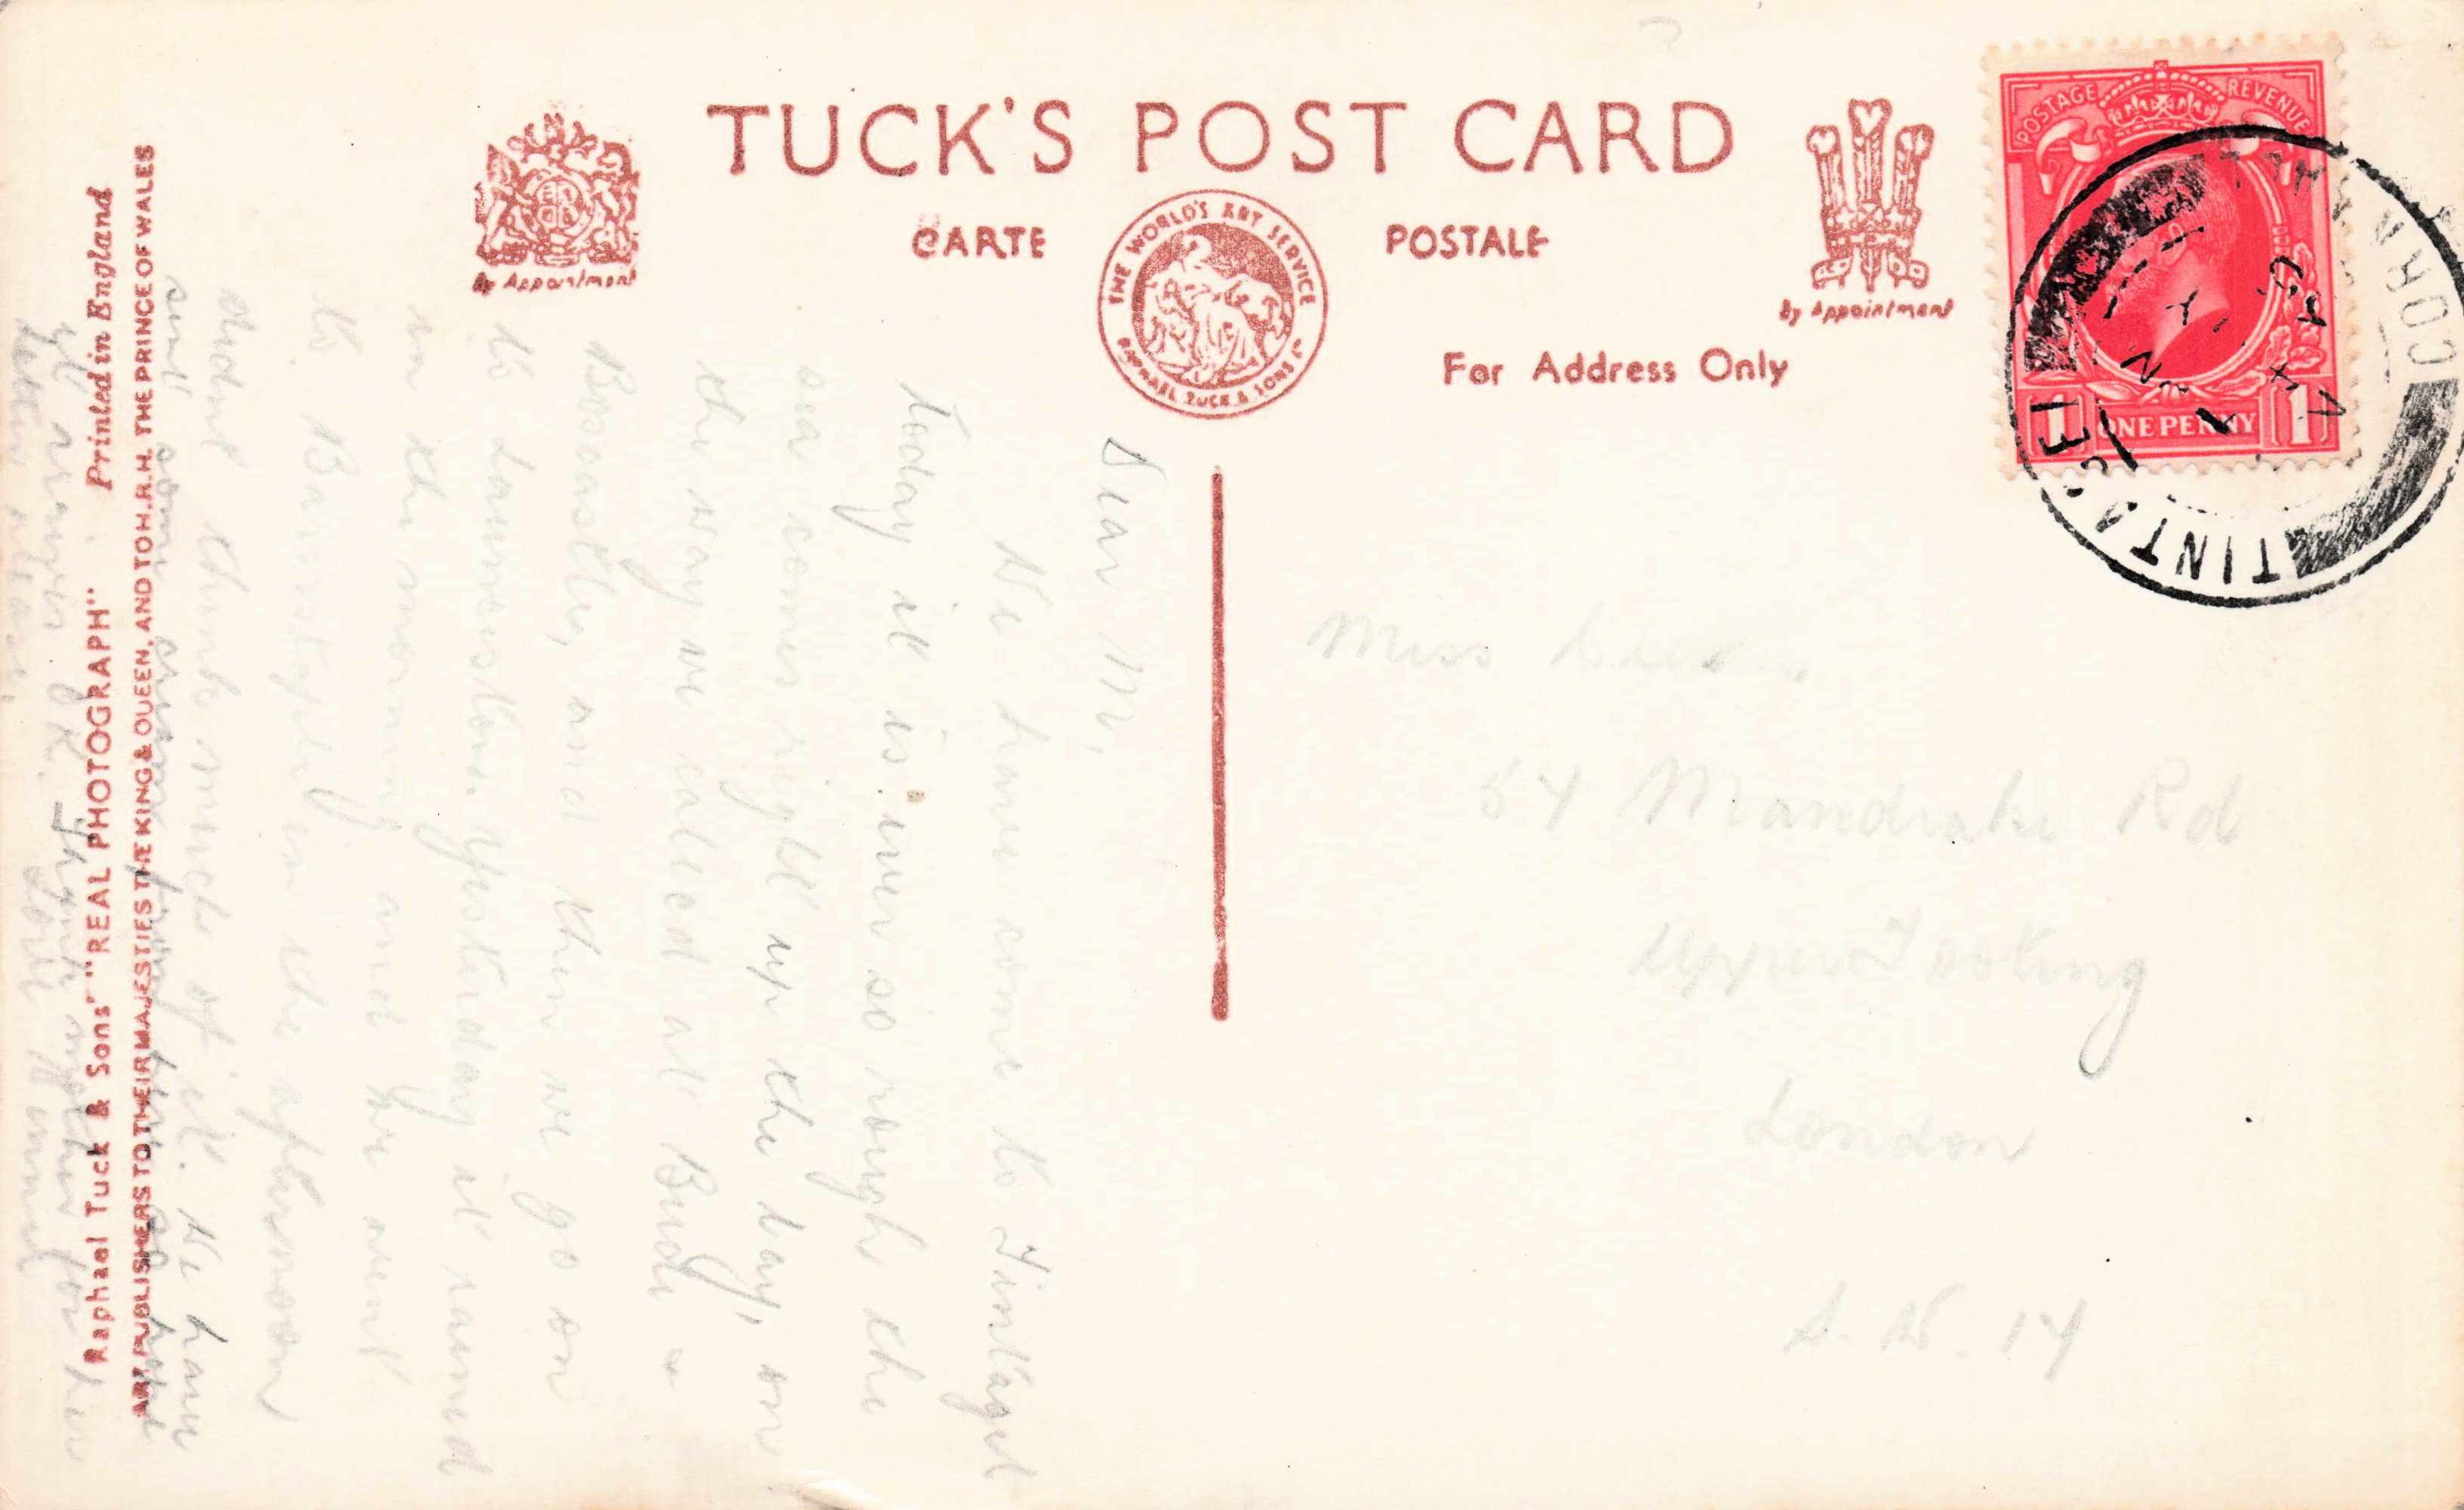 TUCK'S POST CARD
CARTE POSTALE
by Appointment
THE WORLD'S ART SERVICE
RAPHAEL TUCK & SONS LD
by Appointment
For Address Only
POSTAGE REVENUE
1 ONE PENNY 1
TINTAGEL
CORNWALL
Miss
54 Mandrake Rd
Upper Tooting
London
S.W. 17
Dear M,
We have come to Tintagel
today it is ever so rough the
sea comes right up the bay, on
the way we called at Bude &
Boscastle, and then we go on
to Launceston. Yesterday it rained
in the morning and we went
to Barnstaple in the afternoon
didnt think much of it. We have
sent some cream from here so hope
it arrives OK. Thank mother for her
letter please.
Love
Raphael Tuck & Sons' "REAL PHOTOGRAPH" Printed in England
ART PUBLISHERS TO THEIR MAJESTIES THE KING & QUEEN, AND TO H.R.H. THE PRINCE OF WALES